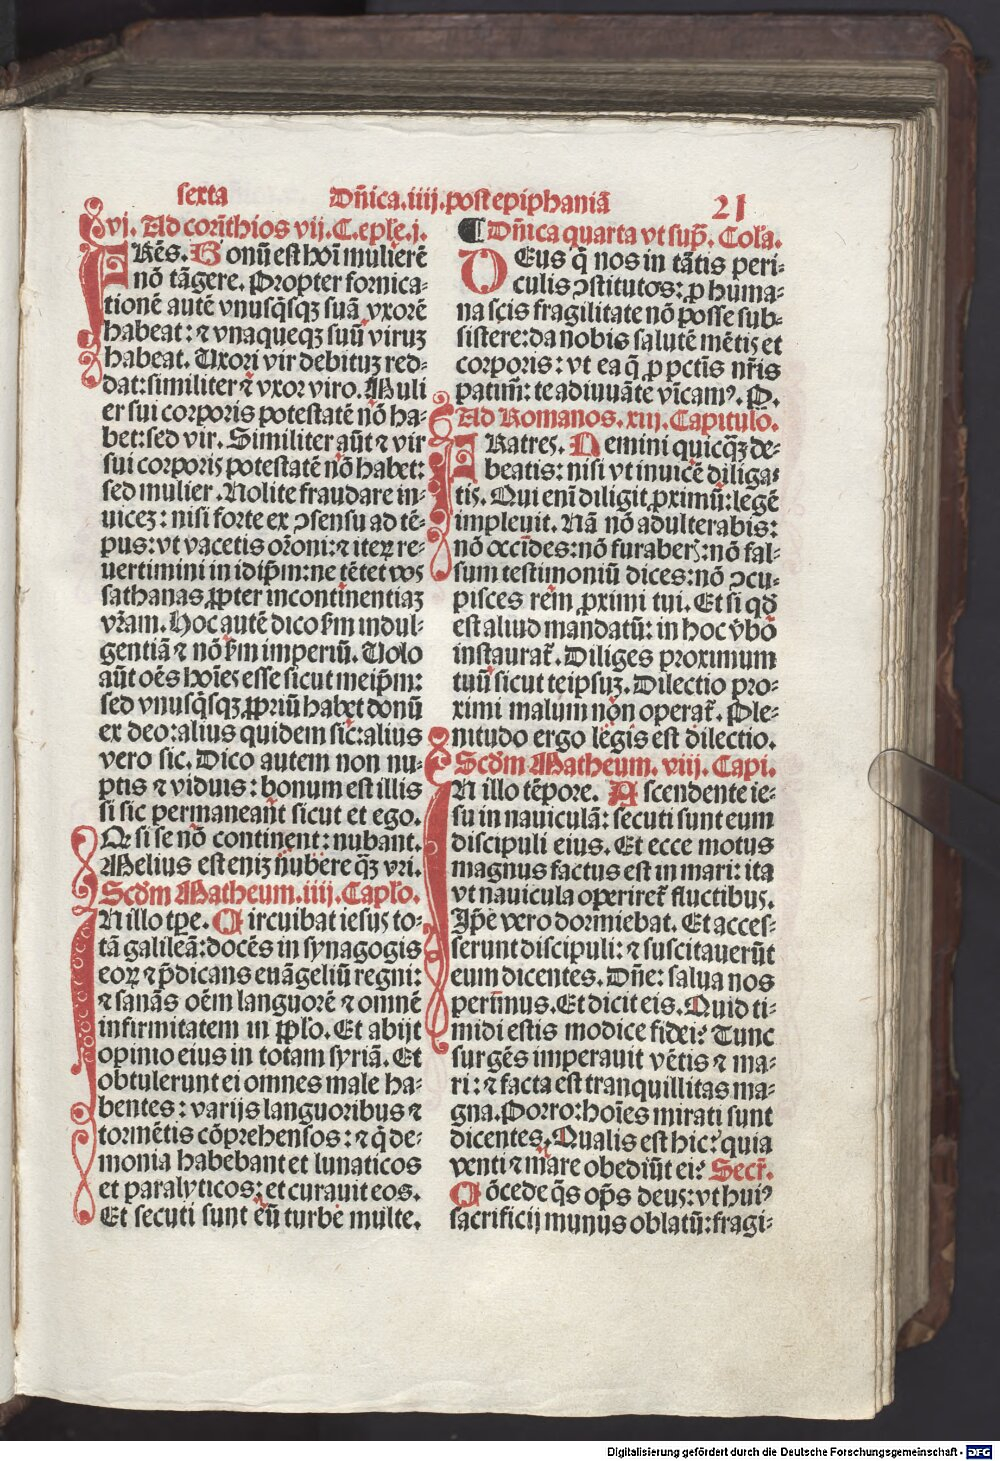 sexta
Dñica.iiij.post epiphaniã
21
vj. Ad coriñthios vij. C. eple. j.
FRẽs. Bonũ est hoĩ mulierẽ
nõ tãgere. Propter fornica-
tionẽ autẽ vnusq̃sqꝫ suã vxorẽ
habeat: ⁊ vnaqueqꝫ suũ viruꝫ
habeat. Uxori vir debituꝫ red-
dat: similiter ⁊ vxor viro. Muli
er sui corporis potestatẽ nõ ha-
bet: sed vir. Similiter aũt ⁊ vir
sui corporis potestatẽ nõ habet:
sed mulier. Nolite fraudare in-
uiceꝫ: nisi forte ex ↄsensu ad tẽ-
pus: vt vacetis or̃oni: ⁊ iteꝝ re-
uertimini in idip̃m: ne tẽtet vos
sathanas ꝓpter incontinentiaꝫ
vr̃am. Hoc autẽ dico ẜm indul-
gentiã ⁊ nõ ẜm imperiũ. Uolo
aũt oẽs hoĩes esse sicut meip̃m:
sed vnusq̃sqꝫ ꝓpriũ habet donũ
ex deo: alius quidem sic: alius
vero sic. Dico autem non nu-
ptis ⁊ viduis: bonum est illis
si sic permaneant sicut et ego.
Qz si se nõ continent: nubant.
Melius est eniꝫ nubere q̃ꝫ vri.
Scd̃m Matheum. iiij. Capl̃o.
IN illo tꝑe. Circuibat iesus to-
tã galileã: docẽs in synagogis
eoꝝ ⁊ p̃dicans euãgeliũ regni:
⁊ sanãs oẽm languorẽ ⁊ omnẽ
infirmitatem in ppl̃o. Et abijt
opinio eius in totam syriã. Et
obtulerunt ei omnes male ha-
bentes: varijs languoribus ⁊
tormẽtis cõprehensos: ⁊ q̃ de-
monia habebant et lunaticos
et paralyticos: et curauit eos.
Et secuti sunt eũ turbe multe.
¶ Dñica quarta vt sup̃. Col̃a.
DEus q̃ nos in tãtis peri-
culis ↄstitutos: ꝓ huma-
na scis fragilitate nõ posse sub-
sistere: da nobis salutẽ mẽtis et
corporis: vt ea q̃ ꝓ pctĩs nr̃is
patim̃: te adiuuãte vĩcamꝰ. P.
Ad Romanos. xiij. Capitulo.
FRatres. Nemini quicq̃ꝫ de-
beatis: nisi vt inuicẽ diliga-
tis. Qui enĩ diligit ꝓximũ: legẽ
impleuit. Nã nõ adulterabis:
nõ occides: nõ furaberꝭ: nõ fal-
sum testimoniũ dices: nõ ↄcu-
pisces rem ꝓximi tui. Et si qd̃
est aliud mandatũ: in hoc v̾bo
instauraẗ. Diliges proximum
tuũ sicut teipsuꝫ. Dilectio pro-
ximi malum non operaẗ. Ple-
nitudo ergo legis est dilectio.
Scd̃m Matheum. viij. Capi.
IN illo tẽpore. Ascendente ie-
su in nauiculã: secuti sunt eum
discipuli eius. Et ecce motus
magnus factus est in mari: ita
vt nauicula operireẗ fluctibus.
Ip̃e vero dormiebat. Et acces-
serunt discipuli: ⁊ suscitauerũt
eum dicentes. Dñe: salua nos
perimus. Et dicit eis. Quid ti-
midi estis modice fidei? Tunc
surgẽs imperauit vẽtis ⁊ ma-
ri: ⁊ facta est tranquillitas ma-
gna. Porro: hoĩes mirati sunt
dicentes. Qualis est hic: quia
venti ⁊ mare obediũt ei? Secr̃.
COñcede q̃s op̃s deus: vt huiꝰ
sacrificij munus oblatũ: fragi-
Digitalisierung gefördert durch die Deutsche Forschungsgemeinschaft - DFG